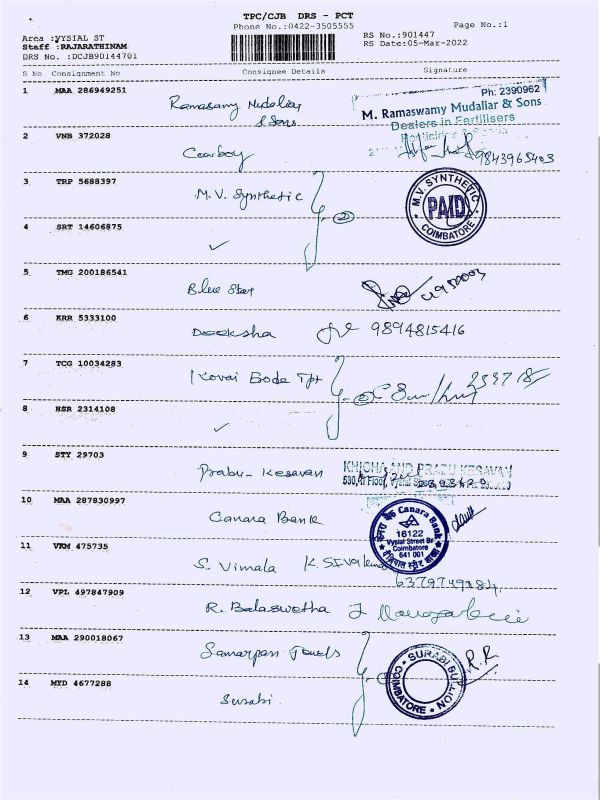 TPC/CJB DRS - PCT
Phone No.:0422-3505555
Page No.:1
Area :VYSIAL ST
Staff :RAJARATHINAM
DRS No. :DCJB90144701
RS No.:901447
RS Date:05-Mar-2022
S No Consignment No Consignee Details Signature
1 MAA 286949251
Ramasamy Mudaliar
& Sons
Ph: 2390962
M. Ramaswamy Mudaliar & Sons
Dealers in Fertilisers
2 VNB 372028
Cowboy
9843965403
3 TRP 5688397
M.V. Synthetic
2
M.V. SYNTHETIC
PAID
COIMBATORE
4 SRT 14606875
5 TMG 200186541
Blue Star
6 KRR 5333100
Deeksha 9894815416
7 TCG 10034283
Kovai Erode Tpt
8 HSR 2314108
9 STY 29703
Prabu - Kesavan
KHICHA AND PRABU KESAVAN
10 MAA 287830997
Canara Bank
Canara Bank
16122
Vysial Street Br
Coimbatore
641 001
11 VKM 475735
S. Vimala K. Sivakumar
6379749184
12 VPL 497847909
R. Balaswetha
13 MAA 290018067
Samarpan Jewels
SURABI BULLION
COIMBATORE
R.R
14 MYD 4677288
Surabi